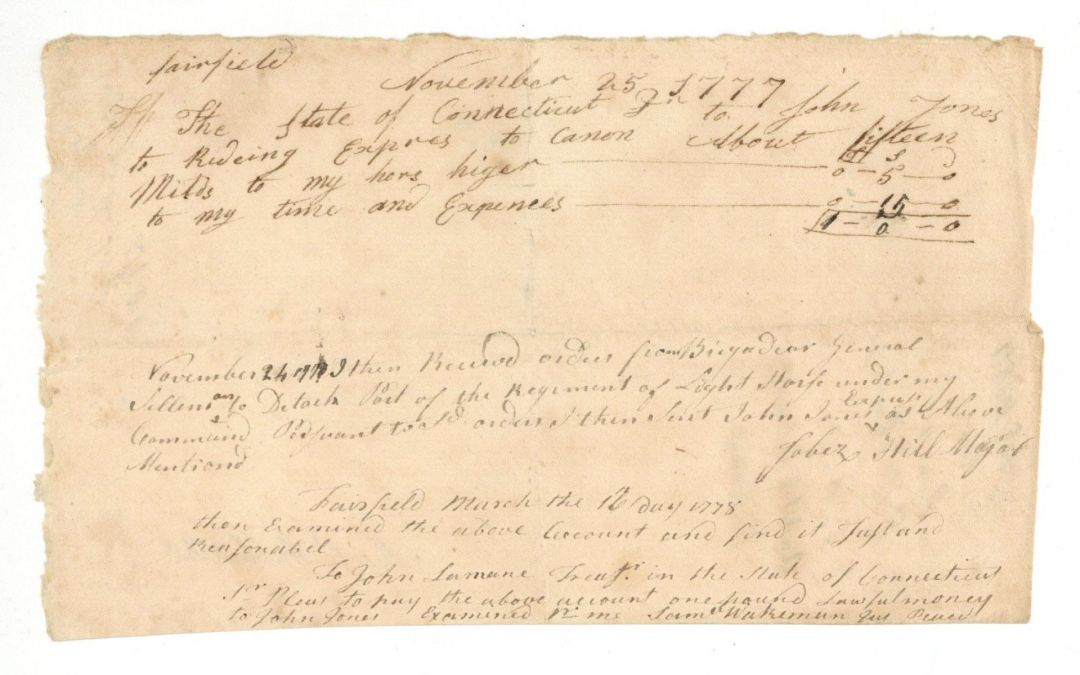 fairfield
November 25 1777
The State of Connecticut Dr to John Jones
to Rideing Expres to Canon About fifteen
Milds to my hors higer — 0 — 5 — 0
£ s d
to my time and Expences — 0 — 15 — 0
1 — 0 — 0
November 24 1777 I then Receivd orders from Brigadear General
Sillemon to Detach Part of the Regiment of Light Horse under my
Command Persuant to sd orders I then Sent John Jones Express as Above
Mentiond
Jabez Hill Major
Fairfield March the 16th Day 1778
then Examined the above account and find it Just and
Reasonabel
To John Lamane Treasr. in the State of Connecticut
Sr Pleas to pay the above account one pound Lawful money
to John Jones Examined pr me Saml Wakeman Jus Peace